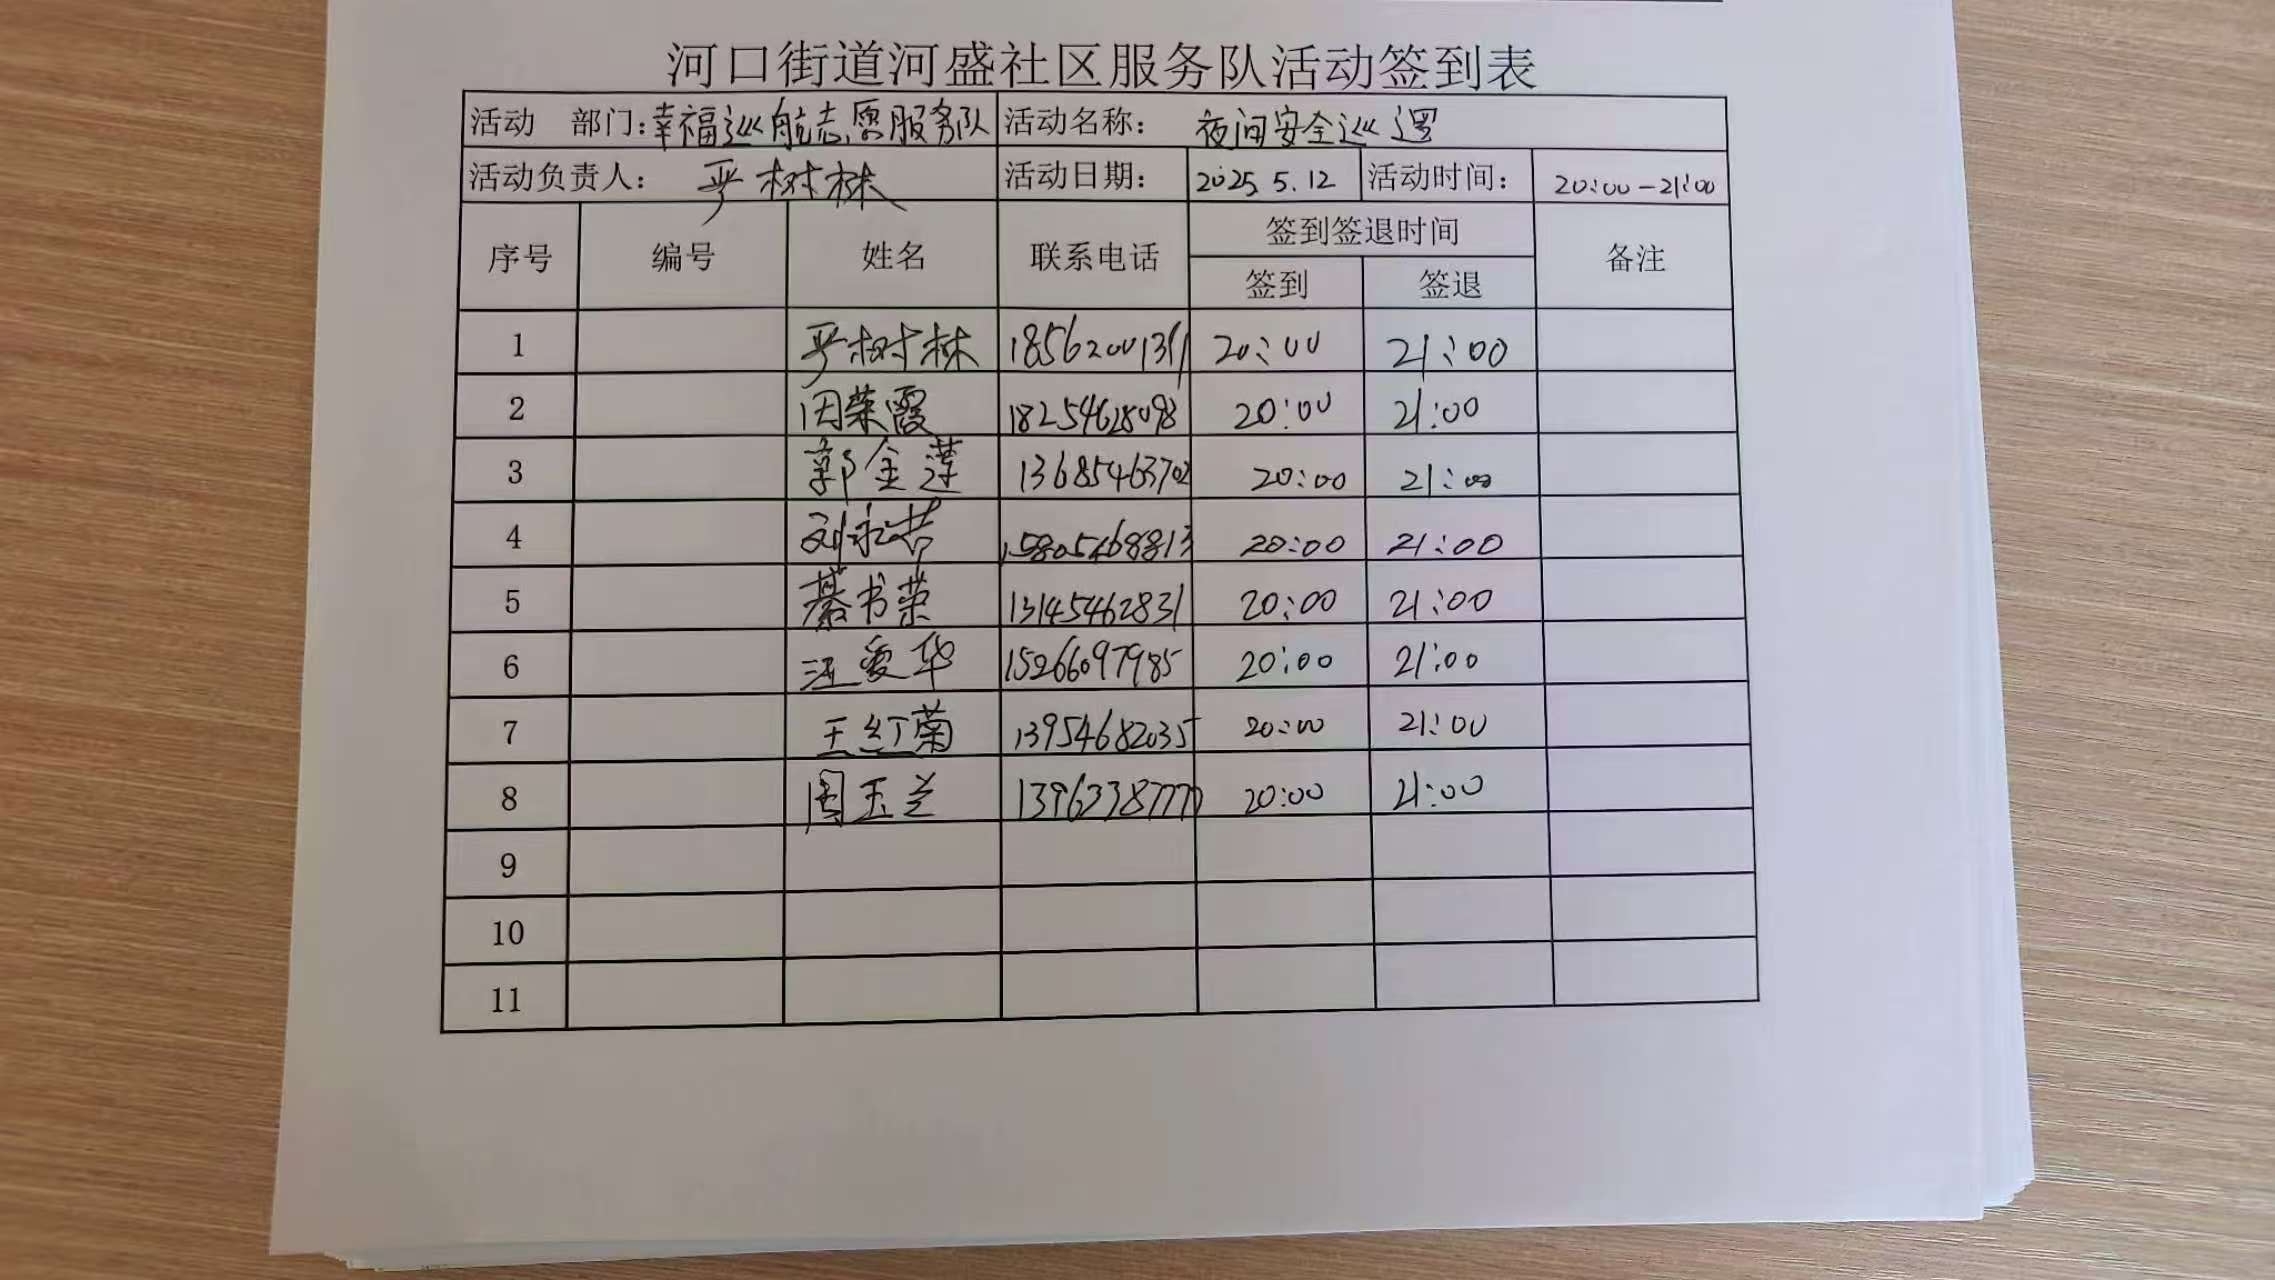 河口街道河盛社区服务队活动签到表
活动 部门：幸福巡航志愿服务队 活动名称： 夜间安全巡逻
活动负责人： 严树林 活动日期： 2025.5.12 活动时间： 20:00-21:00
序号 编号 姓名 联系电话 签到签退时间 备注
签到 签退
1 严树林 20:00 21:00
2 荣霞 18254628098 20:00 21:00
3 郭金莲 13685463702 20:00 21:00
4 刘永 15805468813 20:00 21:00
5 綦书荣 13145462831 20:00 21:00
6 汪爱华 15266097985 20:00 21:00
7 王红菊 13954682035 20:00 21:00
8 周玉兰 20:00 21:00
9
10
11